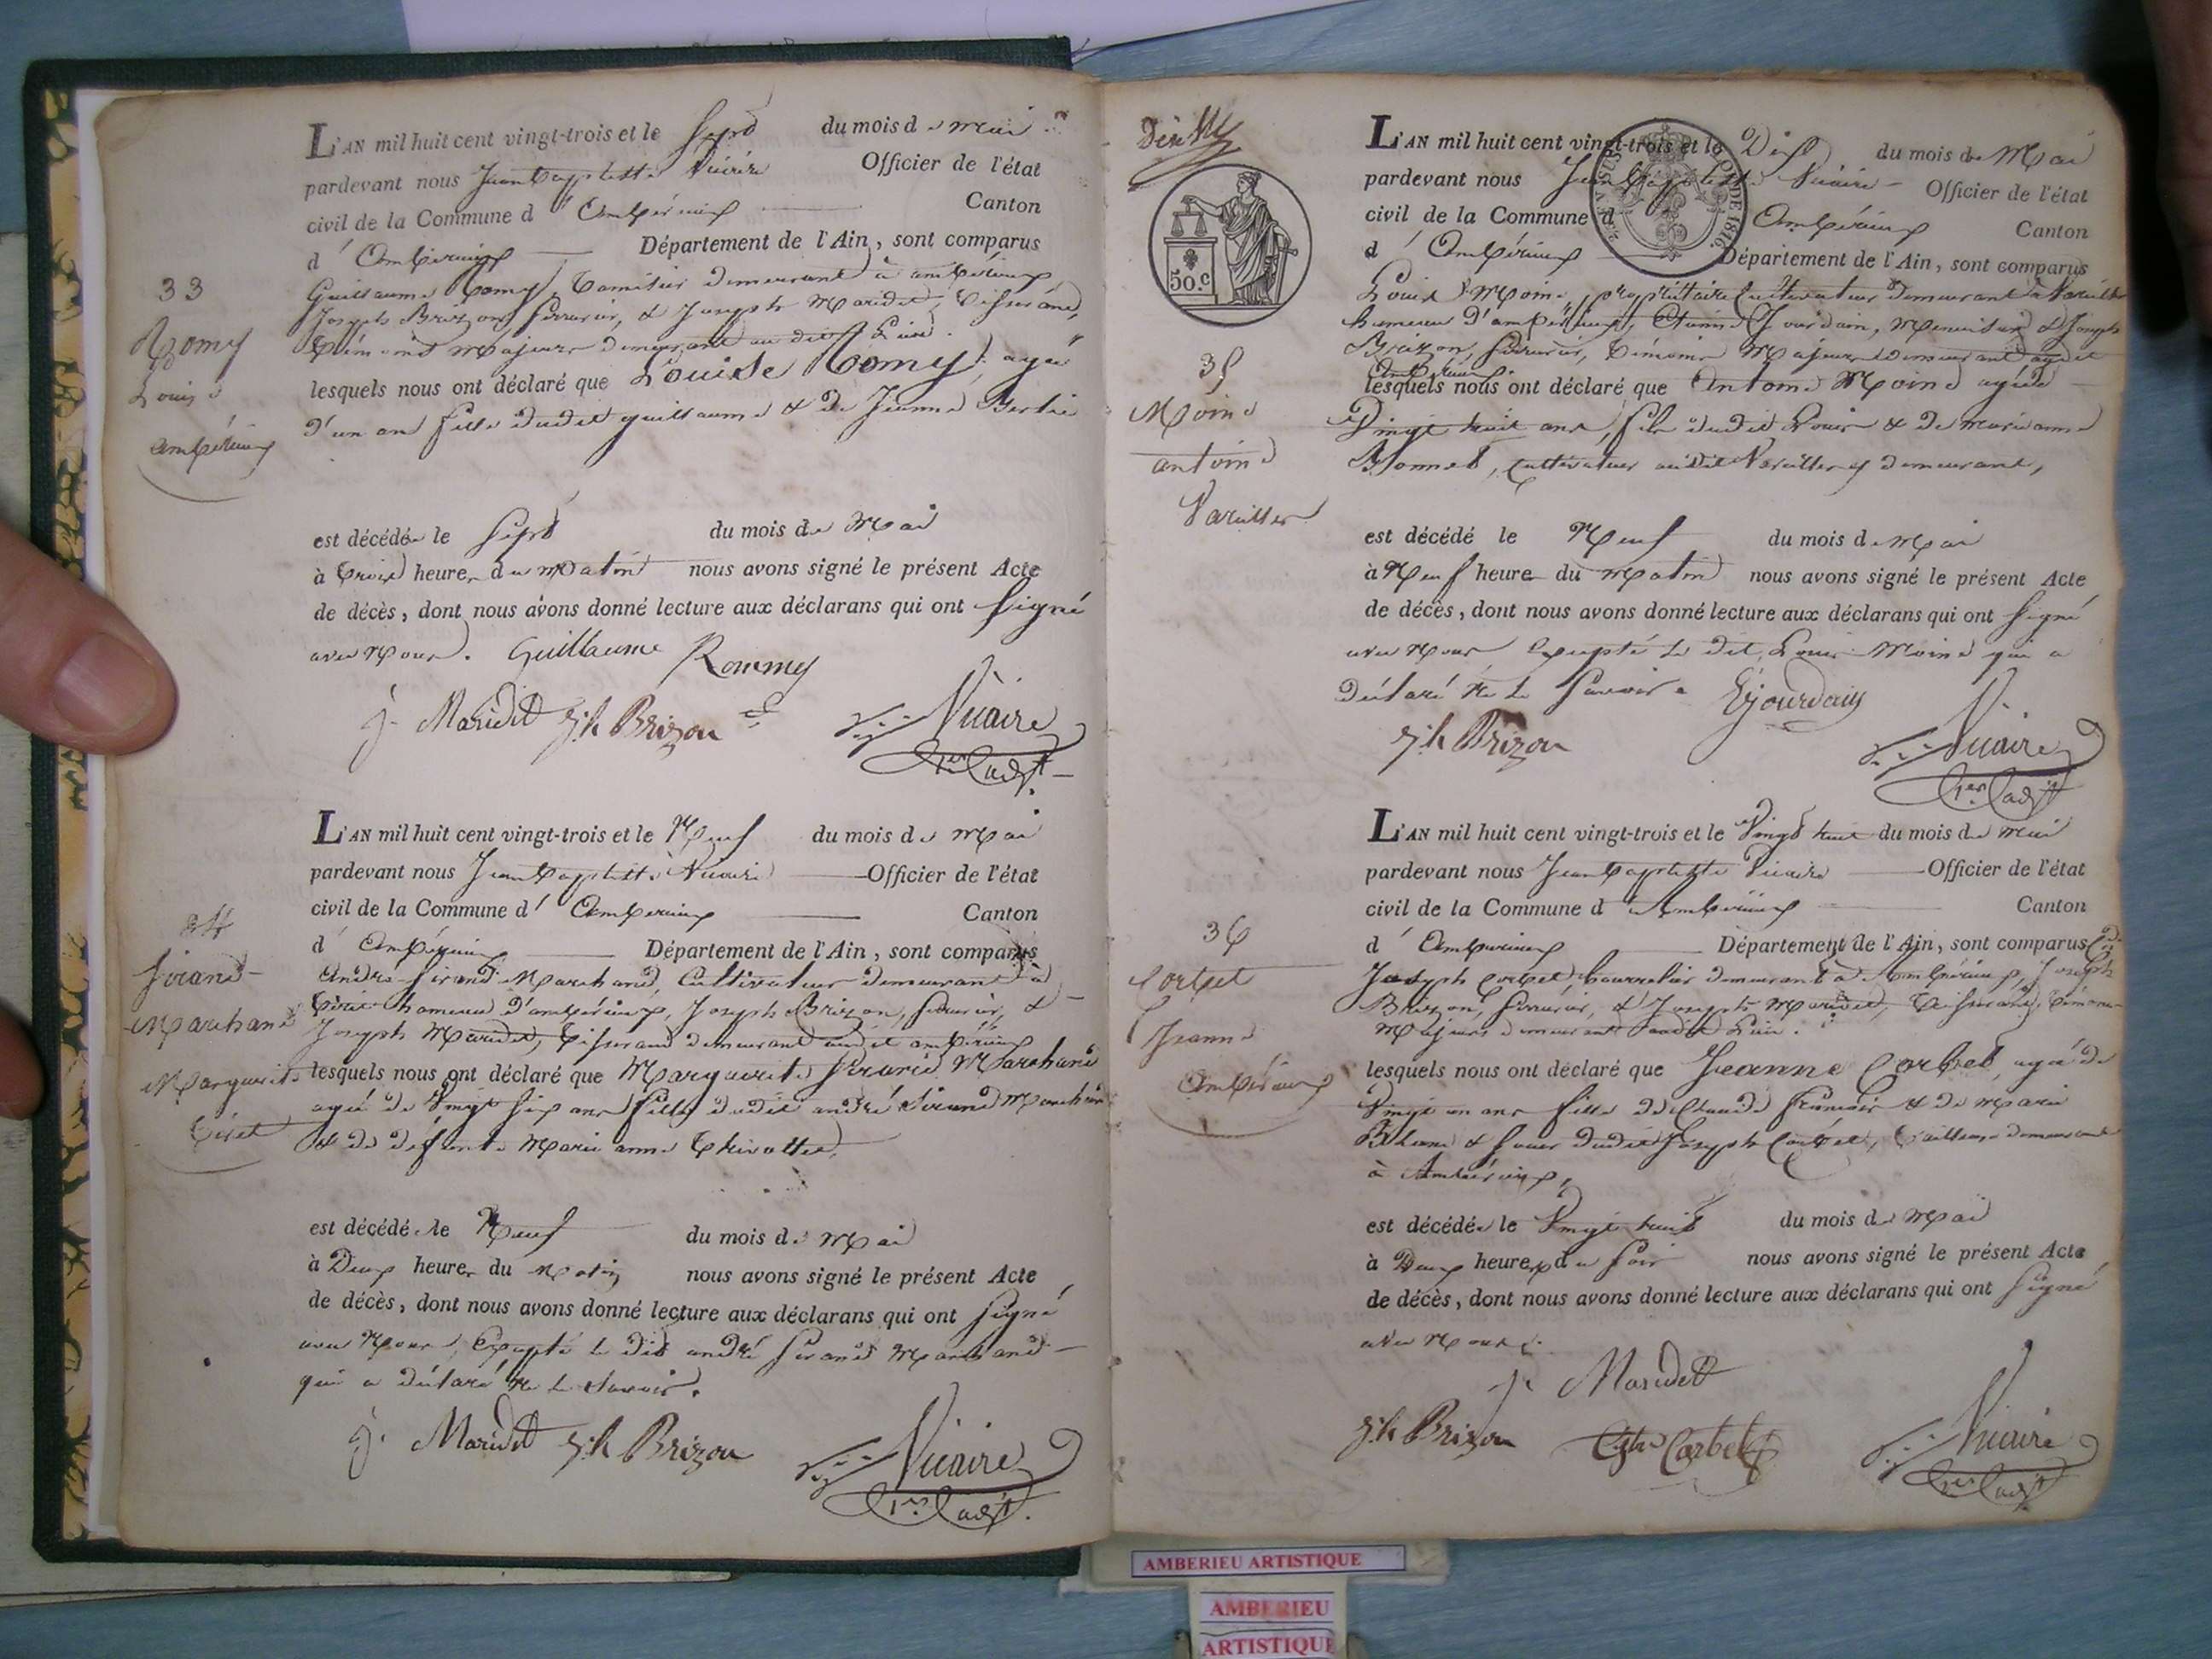 33
Romy
Louise
Ambérieux
L'AN mil huit cent vingt-trois et le Sept du mois de mai
pardevant nous Jean Baptiste Vicaire Officier de l'état
civil de la Commune d'Ambérieux Canton
d'Ambérieux Département de l'Ain, sont comparus
Guillaume Romy, demeurant à ambérieux
Joseph Brizon, serrurier, & Joseph Maridet, tisserand,
témoins majeurs demeurant au dit Lieu.
lesquels nous ont déclaré que Louise Romy, agée
d'un an fille dudit guillaume & de Jeanne
est décédée le Sept du mois de Mai
à trois heures du matin nous avons signé le présent Acte
de décès, dont nous avons donné lecture aux déclarans qui ont signé
avec Nous. Guillaume Rommy
j. Maridet Jh Brizon Vicaire
1er adjt
34
Sirand
Marchand
Marguerite
Tiret
L'AN mil huit cent vingt-trois et le Neuf du mois de Mai
pardevant nous Jean Baptiste Vicaire Officier de l'état
civil de la Commune d'Ambérieux Canton
d'Ambérieux Département de l'Ain, sont comparus
André Sirand Marchand, Cultivateur demeurant à
Tiret hameau d'ambérieux, Joseph Brizon, serrurier, &
Joseph Maridet, tisserand demeurant audit ambérieux
lesquels nous ont déclaré que Marguerite Sirand Marchand
agée de Vingt six ans fille dudit andré Sirand Marchand
& de défunte Marie anne
est décédée le Neuf du mois de Mai
à Deux heures du Matin nous avons signé le présent Acte
de décès, dont nous avons donné lecture aux déclarans qui ont signé
avec Nous, Excepté le dit andré Sirand Marchand
qui a déclaré ne le savoir.
j. Maridet Jh Brizon Vicaire
1er adjt
50.c
1816
35
Moine
antoine
Vareilles
L'AN mil huit cent vingt-trois et le Dix du mois de Mai
pardevant nous Jean Baptiste Vicaire Officier de l'état
civil de la Commune d'Ambérieux Canton
d'Ambérieux Département de l'Ain, sont comparus
Louis Moine, propriétaire Cultivateur Demeurant à Vareilles
hameau d'ambérieux, Jourdain, Menuisier & Joseph
Brizon, serrurier, témoins Majeurs Demeurant audit
Ambérieux.
lesquels nous ont déclaré que Antoine Moine agé de
Vingt huit ans, fils dudit Louis & de marianne
Bonnet, Cultivateur audit Vareilles y demeurant,
est décédé le Neuf du mois de Mai
à Neuf heure du matin nous avons signé le présent Acte
de décès, dont nous avons donné lecture aux déclarans qui ont signé
avec Nous Excepté le dit Louis Moine qui a
déclaré ne le savoir. Jourdain
Jh Brizon Vicaire
1er adjt
36
Corbet
Jeanne
Ambérieux
L'AN mil huit cent vingt-trois et le Vingt huit du mois de mai
pardevant nous Jean Baptiste Vicaire Officier de l'état
civil de la Commune d'Ambérieux Canton
d'Ambérieux Département de l'Ain, sont comparus
Joseph Corbet, bourrelier demeurant à Ambérieux, Joseph
Brizon, serrurier, & Joseph Maridet, tisserand, témoins
Majeurs demeurant audit Lieu.
lesquels nous ont déclaré que Jeanne Corbet, agée de
Vingt un ans fille de Claude françois & de Marie
& soeur dudit Joseph Corbet, tailleuse demeurant
à Ambérieux,
est décédée le Vingt huit du mois de Mai
à Deux heures du soir nous avons signé le présent Acte
de décès, dont nous avons donné lecture aux déclarans qui ont signé
avec Nous.
j. Maridet
Jh Brizon Corbet Vicaire
1er adjt
AMBERIEU ARTISTIQUE
AMBERIEU
ARTISTIQUE